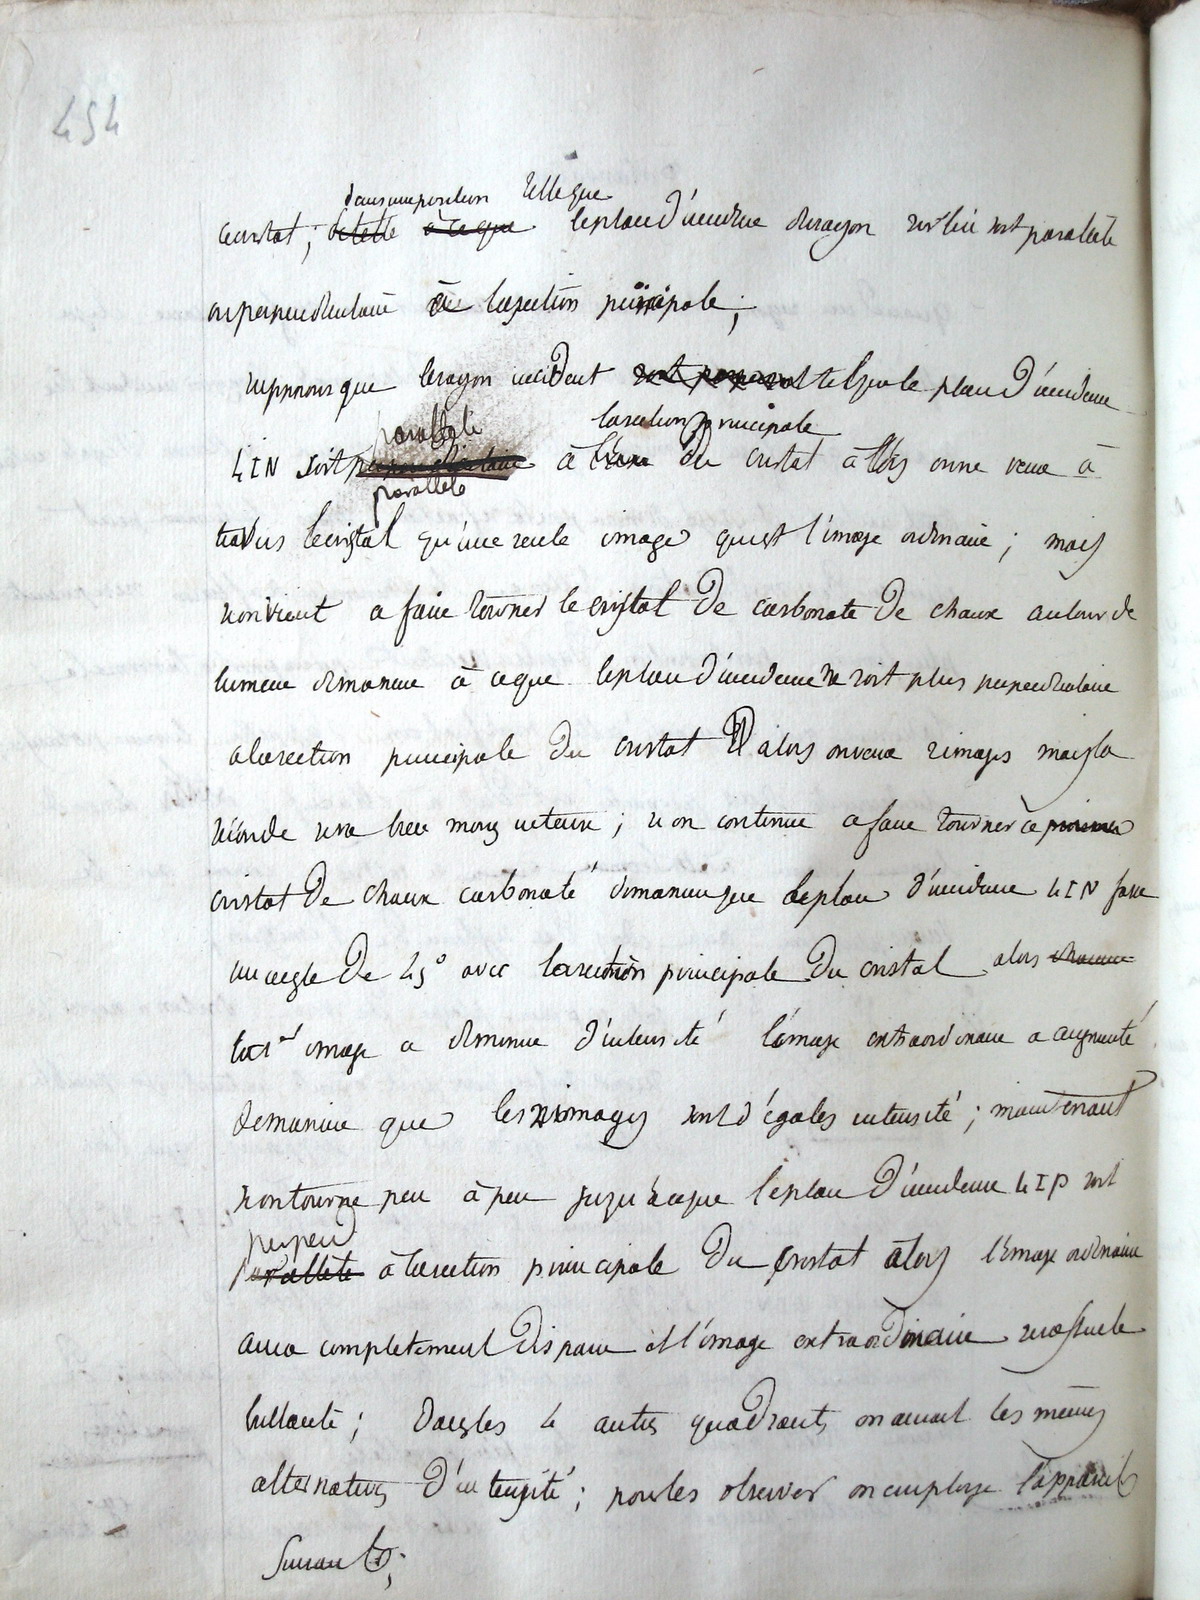 454
dans une position telle que
ce cristal; de telle à ce que le plan d'incidence du rayon sur lui soit parallele
ou perpendiculaire à la section principale;
supposons que le rayon incident soit tel que le plan d'incidence
parallele la section principale
LIN soit perpendiculaire à l'axe du cristal alors on ne verra à
parallele
travers le cristal qu'une seule image qui est l'image ordinaire; mais
si on vient a faire tourner le cristal de carbonate de chaux autour de
lumiere de maniere à ce que le plan d'incidence ne soit plus perpendiculaire
a la section principale du cristal alors on verra 2 images mais la
seconde sera bien moins intense; si on continue a faire tourner ce premier
cristal de chaux carbonaté de maniere que le plan d'incidence LIN fasse
un angle de 45° avec la section principale du cristal alors
la 1ere image a diminué d'intensité l'image extraordinaire a augmenté
de maniere que les images sont d'égales intensité; maintenant
si on tourne peu à peu jusqu'à ce que le plan d'incidence LIP soit
perpend
parallele à la section principale du cristal alors l'image ordinaire
aura completement disparue et l'image extraordinaire sera seule
brillante; dans les 4 autres quadrants on aurait les mêmes
alternatives d'intensité; pour les observer on employe l'appareil
suivant;